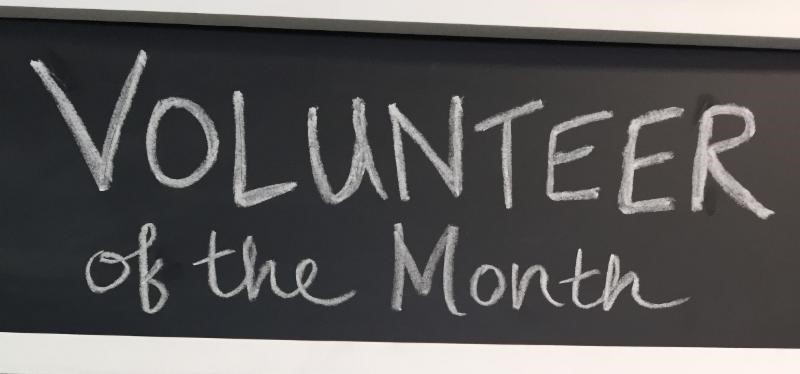 VOLUNTEER
of the Month